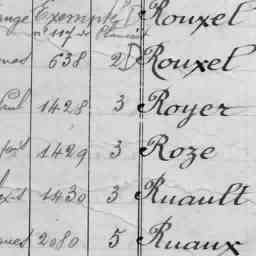 Exempt Rouxel
638 2 Rouxel
1428 3 Royer
1429 3 Roze
1430 3 Ruault
2080 5 Ruaux